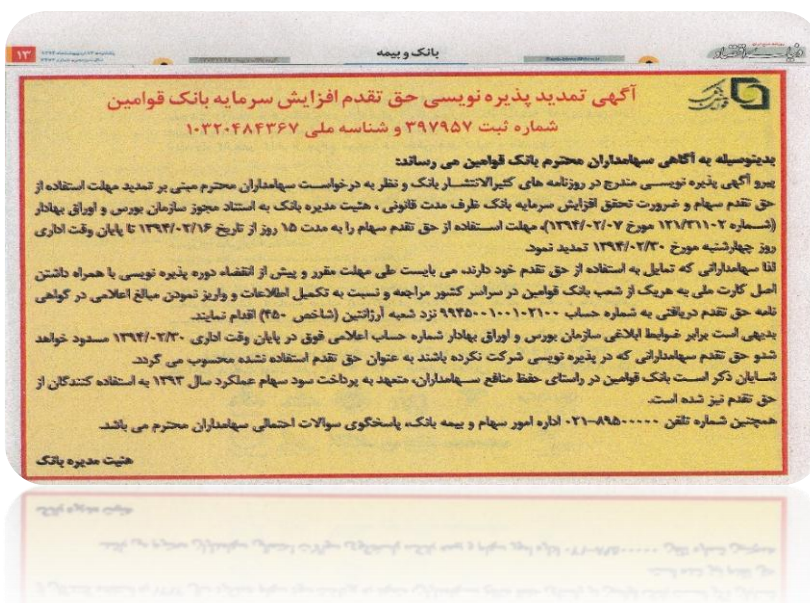 ۱۳
بانک و بیمه
دنیای اقتصاد
آگهی تمدید پذیره نویسی حق تقدم افزایش سرمایه بانک قوامین
شماره ثبت ۳۹۷۹۵۷ و شناسه ملی ۱۰۳۲۰۴۸۴۳۶۷
بدینوسیله به آگاهی سهامداران محترم بانک قوامین می رساند:
پیرو آگهی پذیره نویسی مندرج در روزنامه های کثیرالانتشار بانک و نظر به درخواست سهامداران محترم مبنی بر تمدید مهلت استفاده از
حق تقدم سهام و ضرورت تحقق افزایش سرمایه بانک ظرف مدت قانونی ، هئیت مدیره بانک به استناد مجوز سازمان بورس و اوراق بهادار
(شماره ۱۲۱/۳۱۱۰۲ مورخ ۱۳۹۴/۰۲/۰۷)، مهلت استفاده از حق تقدم سهام را به مدت ۱۵ روز از تاریخ ۱۳۹۴/۰۲/۱۶ تا پایان وقت اداری
روز چهارشنبه مورخ ۱۳۹۴/۰۲/۳۰ تمدید نمود.
لذا سهامدارانی که تمایل به استفاده از حق تقدم خود دارند، می بایست طی مهلت مقرر و پیش از انقضاء دوره پذیره نویسی با همراه داشتن
اصل کارت ملی به هریک از شعب بانک قوامین در سراسر کشور مراجعه و نسبت به تکمیل اطلاعات و واریز نمودن مبالغ اعلامی در گواهی
نامه حق تقدم دریافتی به شماره حساب ۹۹۴۵۰۰۱۰۰۱۰۲۱۰۰ نزد شعبه آرژانتین (شاخص ۴۵۰) اقدام نمایند.
بدیهی است برابر ضوابط ابلاغی سازمان بورس و اوراق بهادار شماره حساب اعلامی فوق در پایان وقت اداری ۱۳۹۴/۰۲/۳۰ مسدود خواهد
شدو حق تقدم سهامدارانی که در پذیره نویسی شرکت نکرده باشند به عنوان حق تقدم استفاده نشده محسوب می گردد.
شایان ذکر است بانک قوامین در راستای حفظ منافع سهامداران، متعهد به پرداخت سود سهام عملکرد سال ۱۳۹۳ به استفاده کنندگان از
حق تقدم نیز شده است.
همچنین شماره تلفن ۸۹۵۰۰۰۰۰-۰۲۱ اداره امور سهام و بیمه بانک، پاسخگوی سوالات احتمالی سهامداران محترم می باشد.
هئیت مدیره بانک